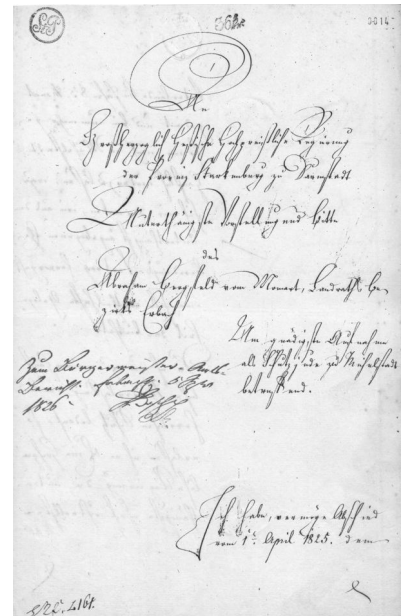 An
Großherzoglich Hessische Hochpreißliche Regierung
der Provinz Starkenburg zu Darmstadt
Unterthänigste Vorstellung und Bitte
des
Abraham Bergfeld von Momart, Landraths Be-
zirks Erbach
Um gnädigste Aufnahme
als Schutzjude zu Michelstadt
betreffend.
Zum Bürgermeister-
Bericht. Erbach
1826
Ich habe, vermöge Abschied
vom 1. April 1825. dem